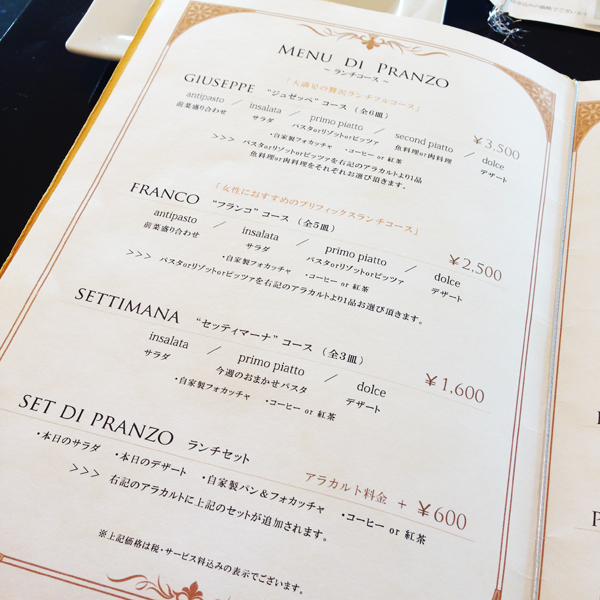 MENU DI PRANZO
~ ランチコース ~
「大満足の贅沢ランチフルコース」
GIUSEPPE "ジュゼッペ" コース (全6皿)
antipasto / insalata / primo piatto / second piatto / dolce ¥3,500
前菜盛り合わせ サラダ パスタorリゾットorピッツァ 魚料理or肉料理 デザート
・自家製フォカッチャ ・コーヒー or 紅茶
>>> パスタorリゾットorピッツァを右記のアラカルトより1品
魚料理or肉料理をそれぞれお選び頂きます。
「女性におすすめのプリフィックスランチコース」
FRANCO "フランコ" コース (全5皿)
antipasto / insalata / primo piatto / dolce ¥2,500
前菜盛り合わせ サラダ パスタorリゾットorピッツァ デザート
・自家製フォカッチャ ・コーヒー or 紅茶
>>> パスタorリゾットorピッツァを右記のアラカルトより1品お選び頂きます。
SETTIMANA "セッティマーナ" コース (全3皿)
insalata / primo piatto / dolce ¥1,600
サラダ 今週のおまかせパスタ デザート
・自家製フォカッチャ ・コーヒー or 紅茶
SET DI PRANZO ランチセット
アラカルト料金 + ¥600
・本日のサラダ ・本日のデザート ・自家製パン&フォカッチャ ・コーヒー or 紅茶
>>> 右記のアラカルトに上記のセットが追加されます。
※上記価格は税・サービス料込みの表示でございます。